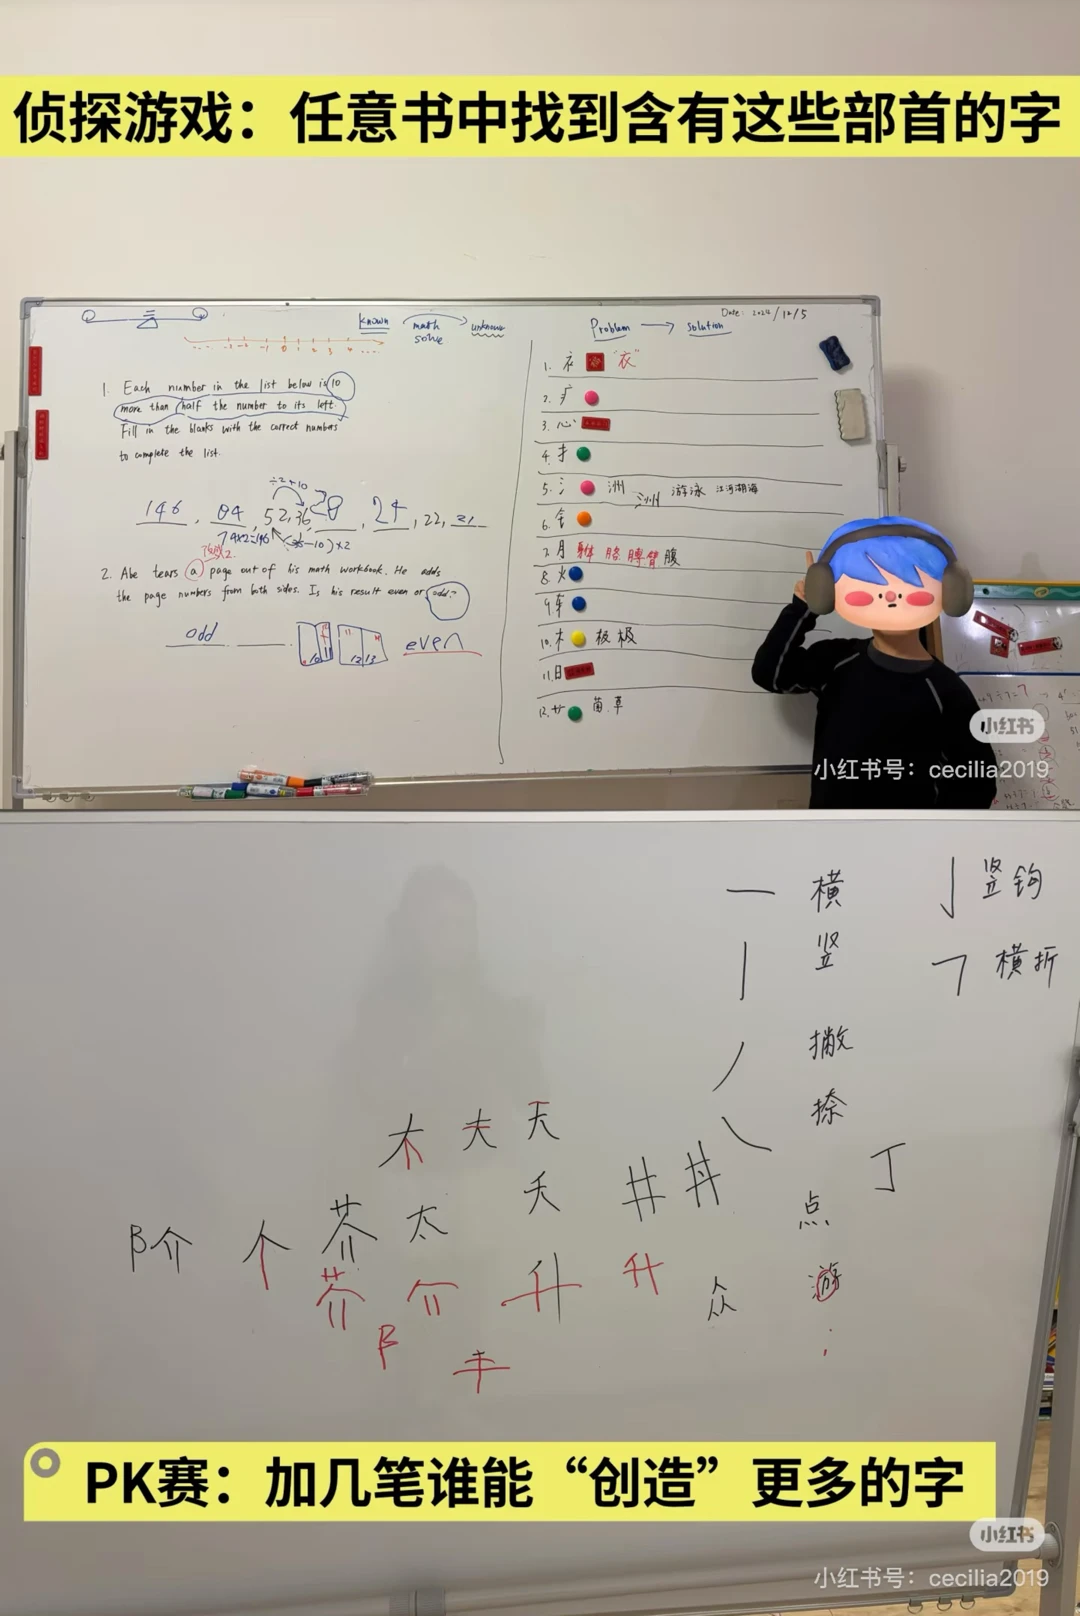 侦探游戏：任意书中找到含有这些部首的字
known math solve unknown
1. Each number in the list below is 10
more than half the number to its left.
Fill in the blanks with the correct numbers
to complete the list.
÷2+10
146, 84, 52, 36, 28, 24, 22, 21
2. Abe tears a page out of his math workbook. He adds
the page numbers from both sides. Is his result even or odd?
odd
even
Date: 2024/12/5
Problem → solution
1. 衤 "衣"
2. 疒
3. 心
4. 扌
5. 氵 洲 游泳 江河湖海
6. 钅
7. 月 胳膊臂腹
8. 火
9. 车
10. 木 板 极
11. 日
12. 艹 苗.草
小红书
小红书号：cecilia2019
一 横
丨 竖
丿 撇
㇏ 捺
点
游
亅 竖钩
𠃍 横折
丁
木 夫 天
阝介 个 芥 太 夭 井 丼
芥 介 升 升 众
阝 丰
PK赛：加几笔谁能“创造”更多的字
小红书
小红书号：cecilia2019